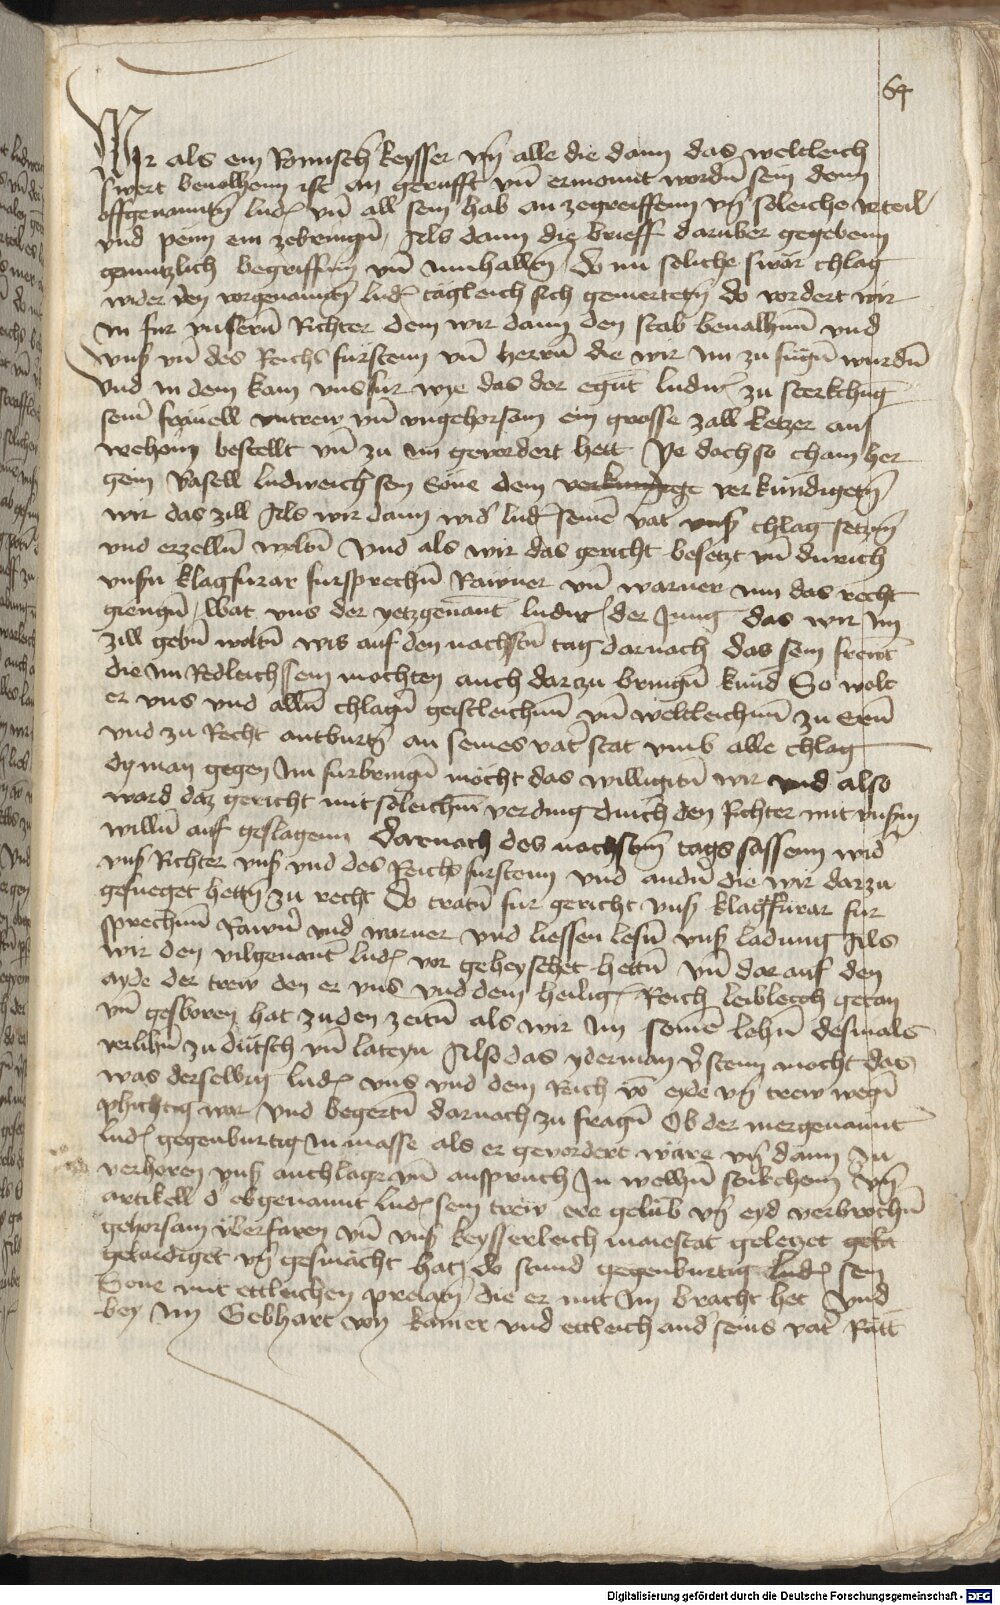 64
Wir als ein Romisch keysser vn̄ alle die dann das weltleich
swert beuolhenn ist an gerufft vn̄ ermonnt wordn̄ sein denn
offgenanntn̄ lud. vn̄ all sein hab an zegreiffenn vn̄ soleiche vrteil
vnd penn ein zebringn̄ Als dann die brieff daruber gegebenn
genutzlich begriffnn vn̄ Innhalltn̄ Do nu soliche swar chlag
wider den vorgenanntn̄ lud. tägleich sich gemertetn̄ do vordert wir
In fur vnsern̄ Richter dem wir dann den stab beualhnn̄ vnd
vnß vn̄ des Reichs fürstenn vn̄ herrn̄ die wir Im zu fügn̄ wurdn̄
Vnd in dem kam vns fur wye das der egūt ludw. zu sterkchūg
sein̄ fräuell vntrew vn̄ vngehorsam ein grosse zall ketzer aus
wehann bestellt vn̄ zu im geuordert hett Ye doch so cham her
gein Basell ludweich sein Sone dem verkundigt verkündigetn̄
wir das zill Als wir dann wid' lud. seinē vat' vnß chlag setzn̄
vnd erzelln̄ woltn̄ Vnd als wir das gericht besetzt vn̄ durich
vnßn klagfurar fursprechn̄ Rawner vn̄ warner nun das recht
giengn̄ / Wat vns der yetzgenannt ludw. der Jung das wir Im
zill gebn̄ woltn̄ wis auf den nachstn̄ tag darnach das sein frewnt
die Im Redleich sein mochten auch darzu bringn̄ kund So wolt
er vns vnd alln̄ chlagn̄ geistleichnn̄ vn̄ weltleichnn̄ zu Ern̄
vnd zu Recht antburtn̄ an seines vat' stat vmb alle chlag
dy man gegen Im furbringn̄ möcht das willigitn̄ wir vnd also
ward daz gericht mit soleichm̄ verding durch den Richter mit vnßm
willn̄ auf geslagenn Darnach des nachstnn̄ tags sassenn wid'
vnß Richter vnß vnd des Reichs furstenn vnd andn̄ die wir darzu
gefueget hettn̄ zu recht Do tratn̄ fur gericht vnß klagfurar fur
sprechnn̄ Rawn̄' vnd warner vnd liessen lesn̄ vnß ladung Als
wir den vilgenant lud. vor geheyschet hettn̄ vn̄ dar auf den
ayde der trew den er vns vnd dem heilig. Reich leiblecch getan
vn̄ gesboren hat zu den zeitn̄ als wir Im seinē lehn̄ desmals
verlihn̄ zu dütsch vn̄ lateyn Also das yderman v'stenn mocht das
was derselbn̄ lud. vns vnd dem Reich vō eyde vn̄ trew wegn̄
phichtig war Vnd begertn̄ darnach zu fragn̄ Ob der mergenannt
lud. gegenburtig In masse als er geuordert wäre vn̄ dann zu
verhoren vnß anchlage vn̄ anspruch In welhn̄ stukchenn vn̄
artikell d' ebgenannt lud. sein trew ere gelüb vn̄ eyd verbrochn̄
gehorsam vberfaren vn̄ vnß keysserleich maiestat geletzet gela
gelaidiget vn̄ gesmächt hat do stund gegenburtig lud. sein
Sone mit ettleichen prelatn̄ die er mit Im bracht het Vnd
bey Im Gebhart von kamer vnd ettleich and' seins vat' Rätt
Digitalisierung gefördert durch die Deutsche Forschungsgemeinschaft - DFG